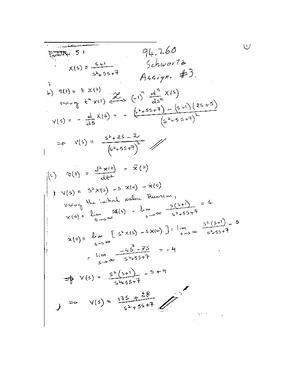 Problem 5.1
94.260
Schwartz
Assign. #3.
X(s) = (s+1)/(s²+5s+7)
b) v(t) = t x(t)
using tⁿ x(t) ⟷ (-1)ⁿ dⁿ/dsⁿ X(s)
V(s) = - d/ds X(s) = - ((s²+5s+7) - (s+1)(2s+5))/(s²+5s+7)²
⇒ V(s) = (s²+2s-2)/(s²+5s+7)²
(c) v(t) = d²x(t)/dt² = ẍ(t)
V(s) = s²X(s) - s x(0) - ẋ(0)
using the initial value theorem,
x(0) = lim s→∞ sX(s) = lim s→∞ s(s+1)/(s²+5s+7) = 1
ẋ(0) = lim s→∞ [s²X(s) - sx(0)] = lim s→∞ s²(s+1)/(s²+5s+7) - s
= lim s→∞ (-4s²-7s)/(s²+5s+7) = -4
⇒ V(s) = s²(s+1)/(s²+5s+7) - s + 4
⇒ V(s) = (17s + 28)/(s²+5s+7)